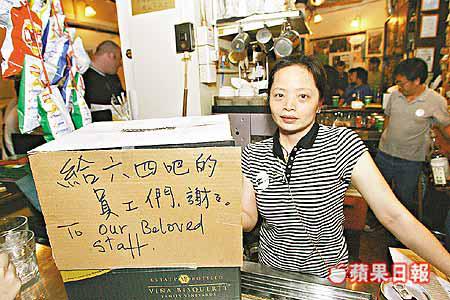 給六四吧的
員工們，謝謝。
To Our Beloved
Staff.
ESTATE BOTTLED
VIÑA BISQUERTT
FAMILY VINEYARDS
蘋果日報